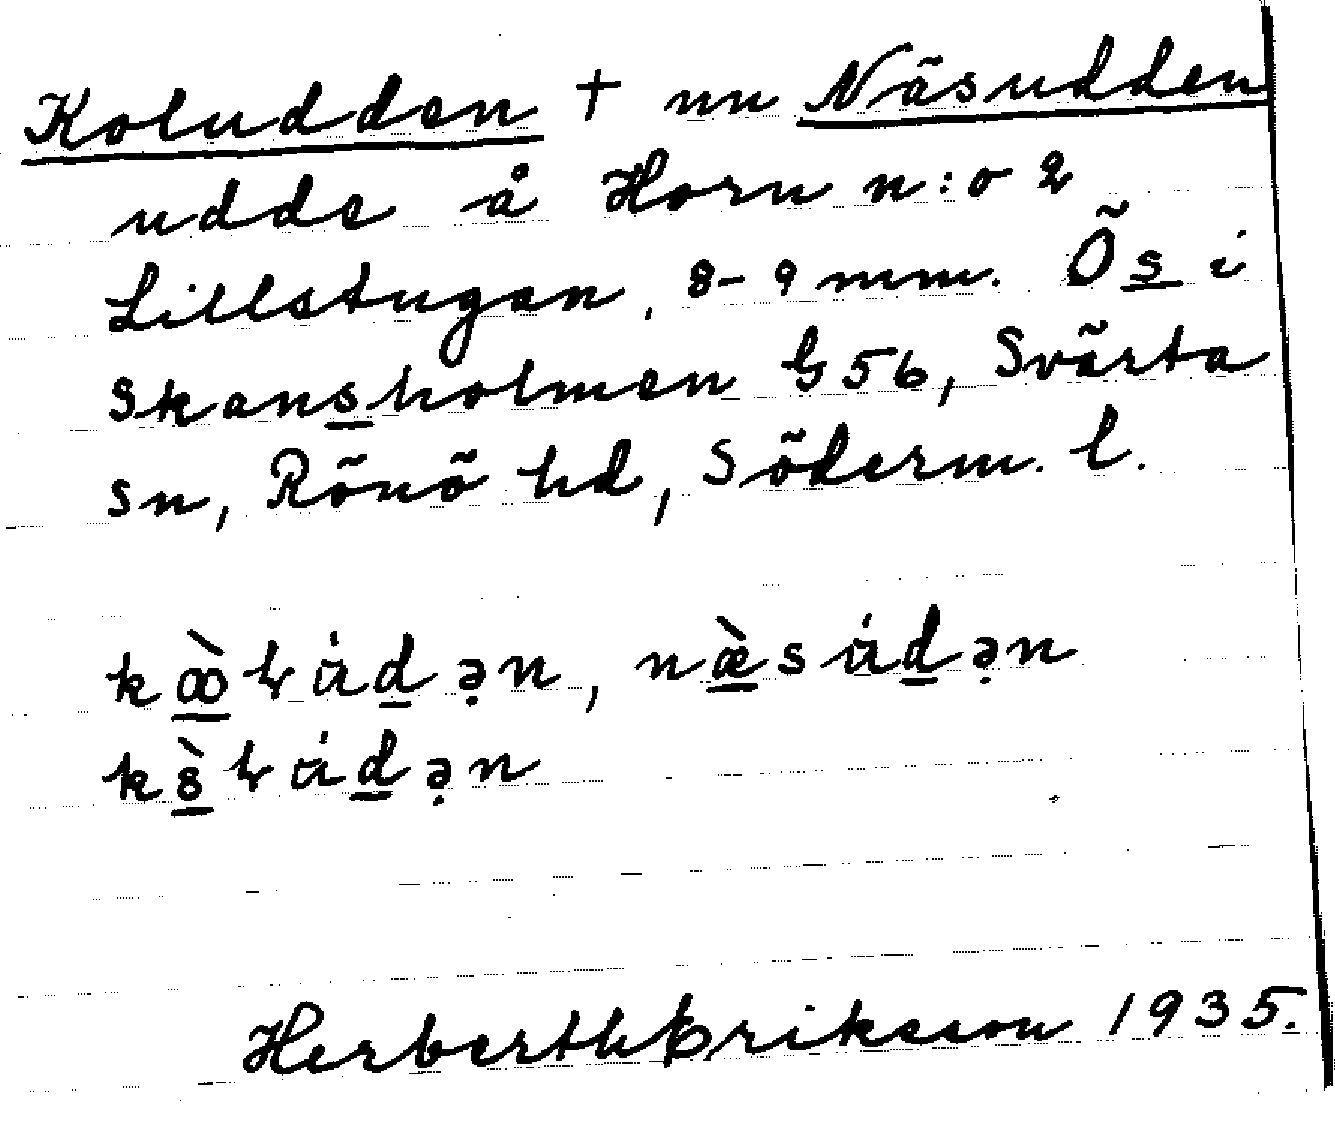 Koludden + nu Näsudden
udde å Horn n:o 2
Lillstugan, 8-9 mm. Ös i
Skansholmen G56, Svärta
sn, Rönö hd, Söderm. l.
Herberth Eriksson 1935.